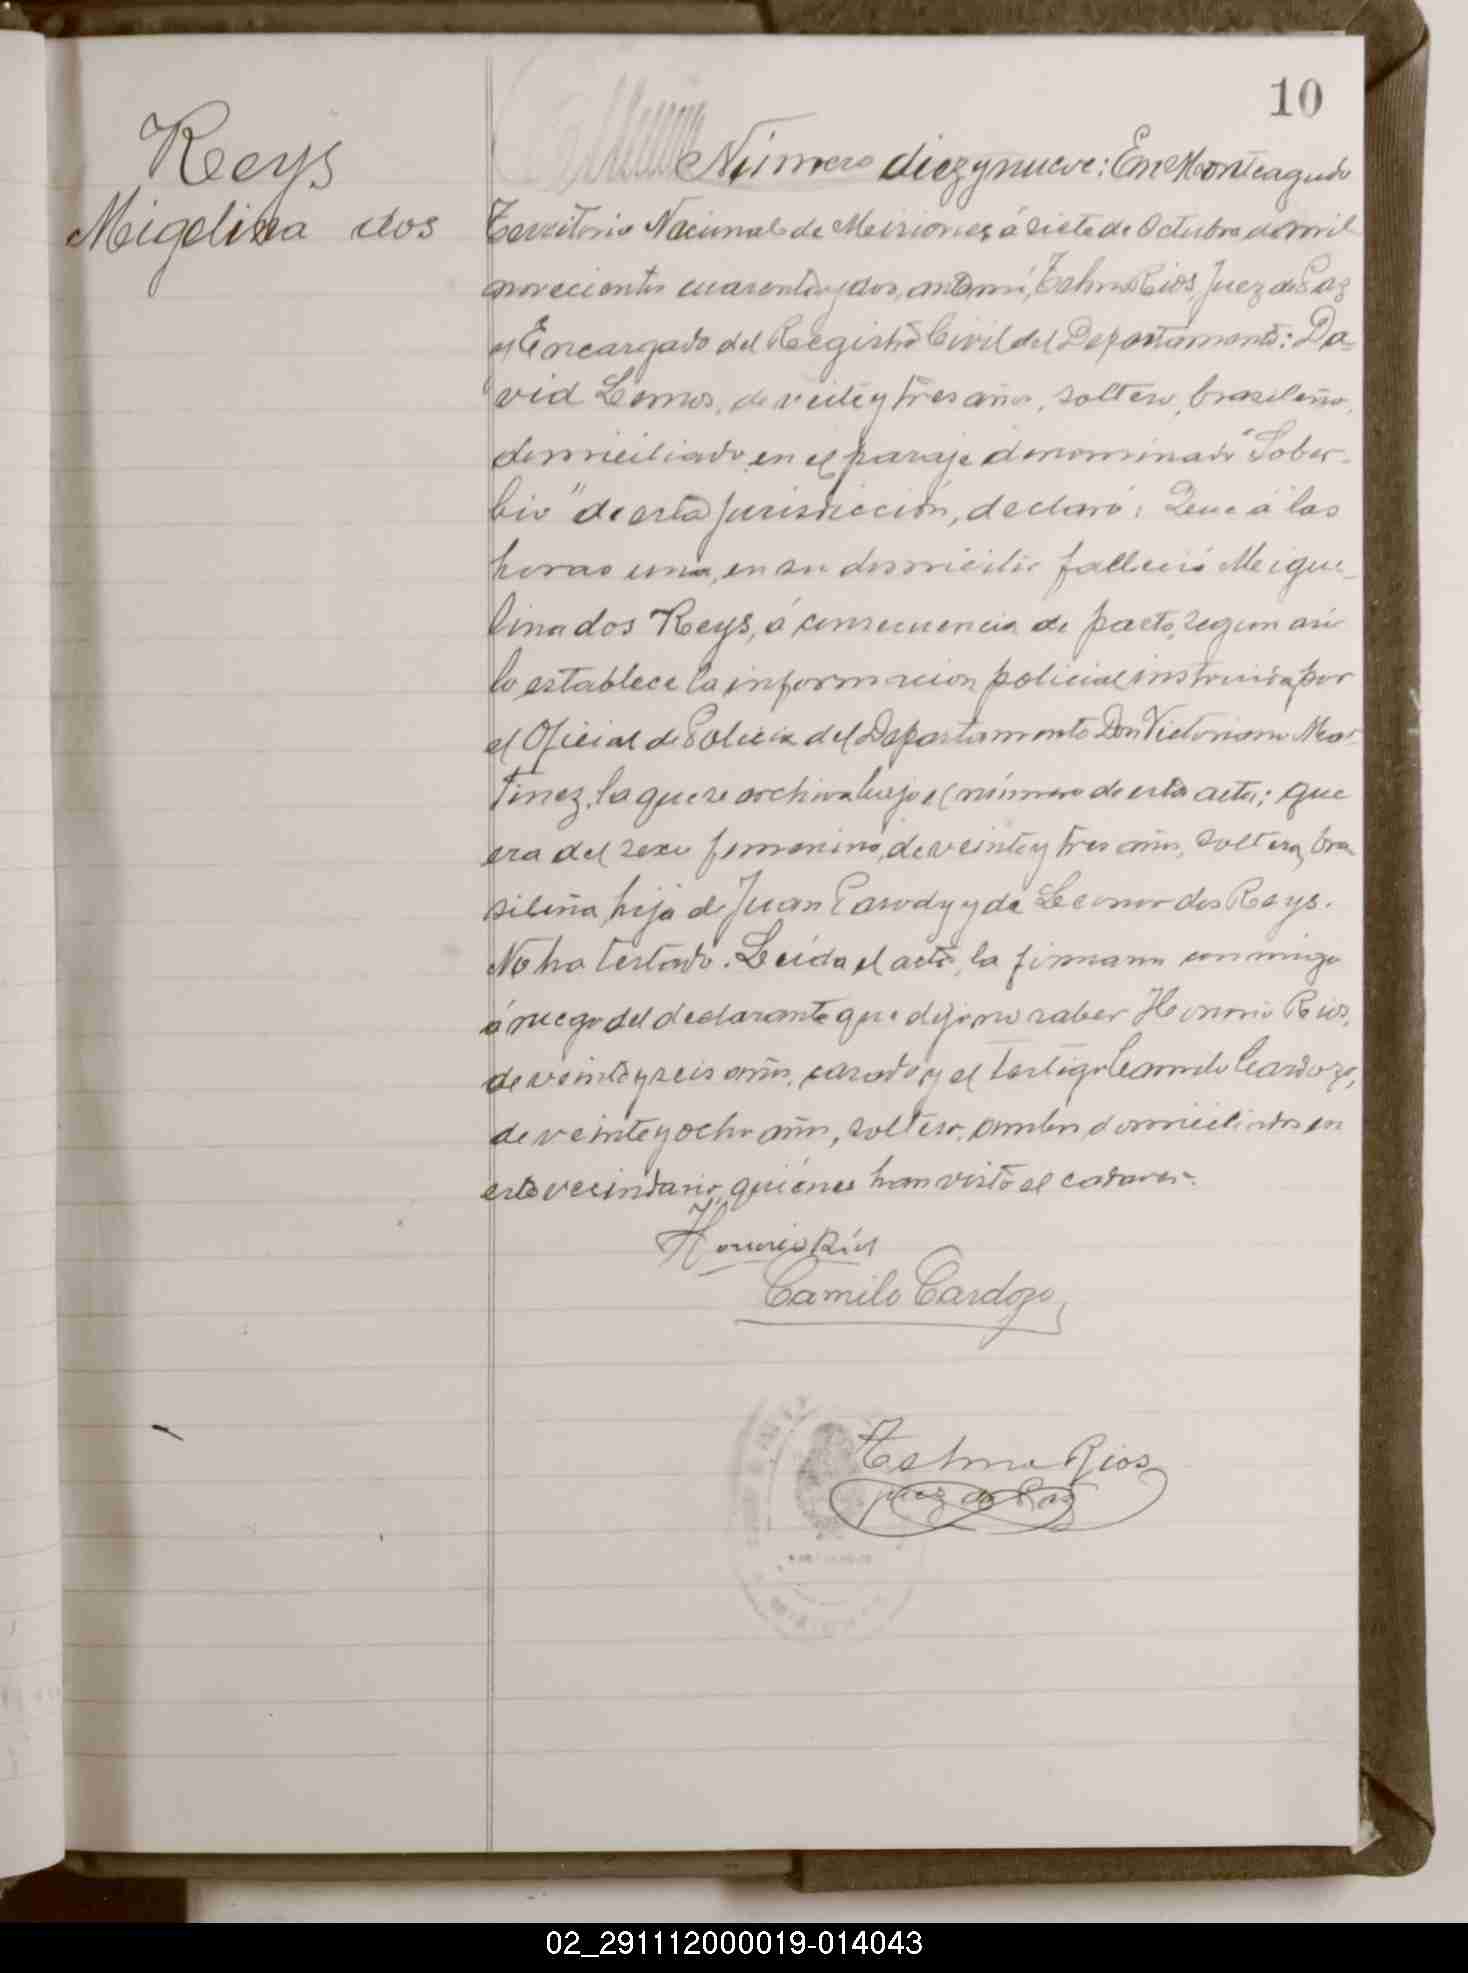 10
Reys
Migelina dos
Número diez y nueve: En Monteagudo
Territorio Nacional de Misiones, á siete de Octubre de mil
novecientos cuarenta y dos, ante mí, Telmo Rios, Juez de Paz
y Encargado del Registro Civil del Departamento: Da-
vid Lemos, de veite y tres años, soltero, brasileño,
domiciliado en el paraje denominado "Sober-
bio" de esta jurisdicción, declaró: Que á las
horas una, en su domicilio falleció Meigue-
lina dos Reys, á consecuencia de parto, segun asi
lo establece la informacion policial instruida por
el Oficial de Policia del Departamento Don Victoriano Mar-
tinez, la que se archiva bajo el número de esta acta; que
era del sexo femenino, de veinte y tres años, soltera, bra
sileña, hija de Juan Parody y de Leonor dos Reys.
No ha testado. Leída el acta, la firmaron conmigo
á ruego del declarante que dijo no saber Honorio Rios,
de veinte y seis años, casado y el testigo Camilo Cardozo,
de veinte y ocho años, soltero, ambos domiciliados en
este vecindario, quiénes han visto el cadaver.
Honorio Ríos
Camilo Cardozo
Telmo Rios
Juez de Paz
02_291112000019-014043